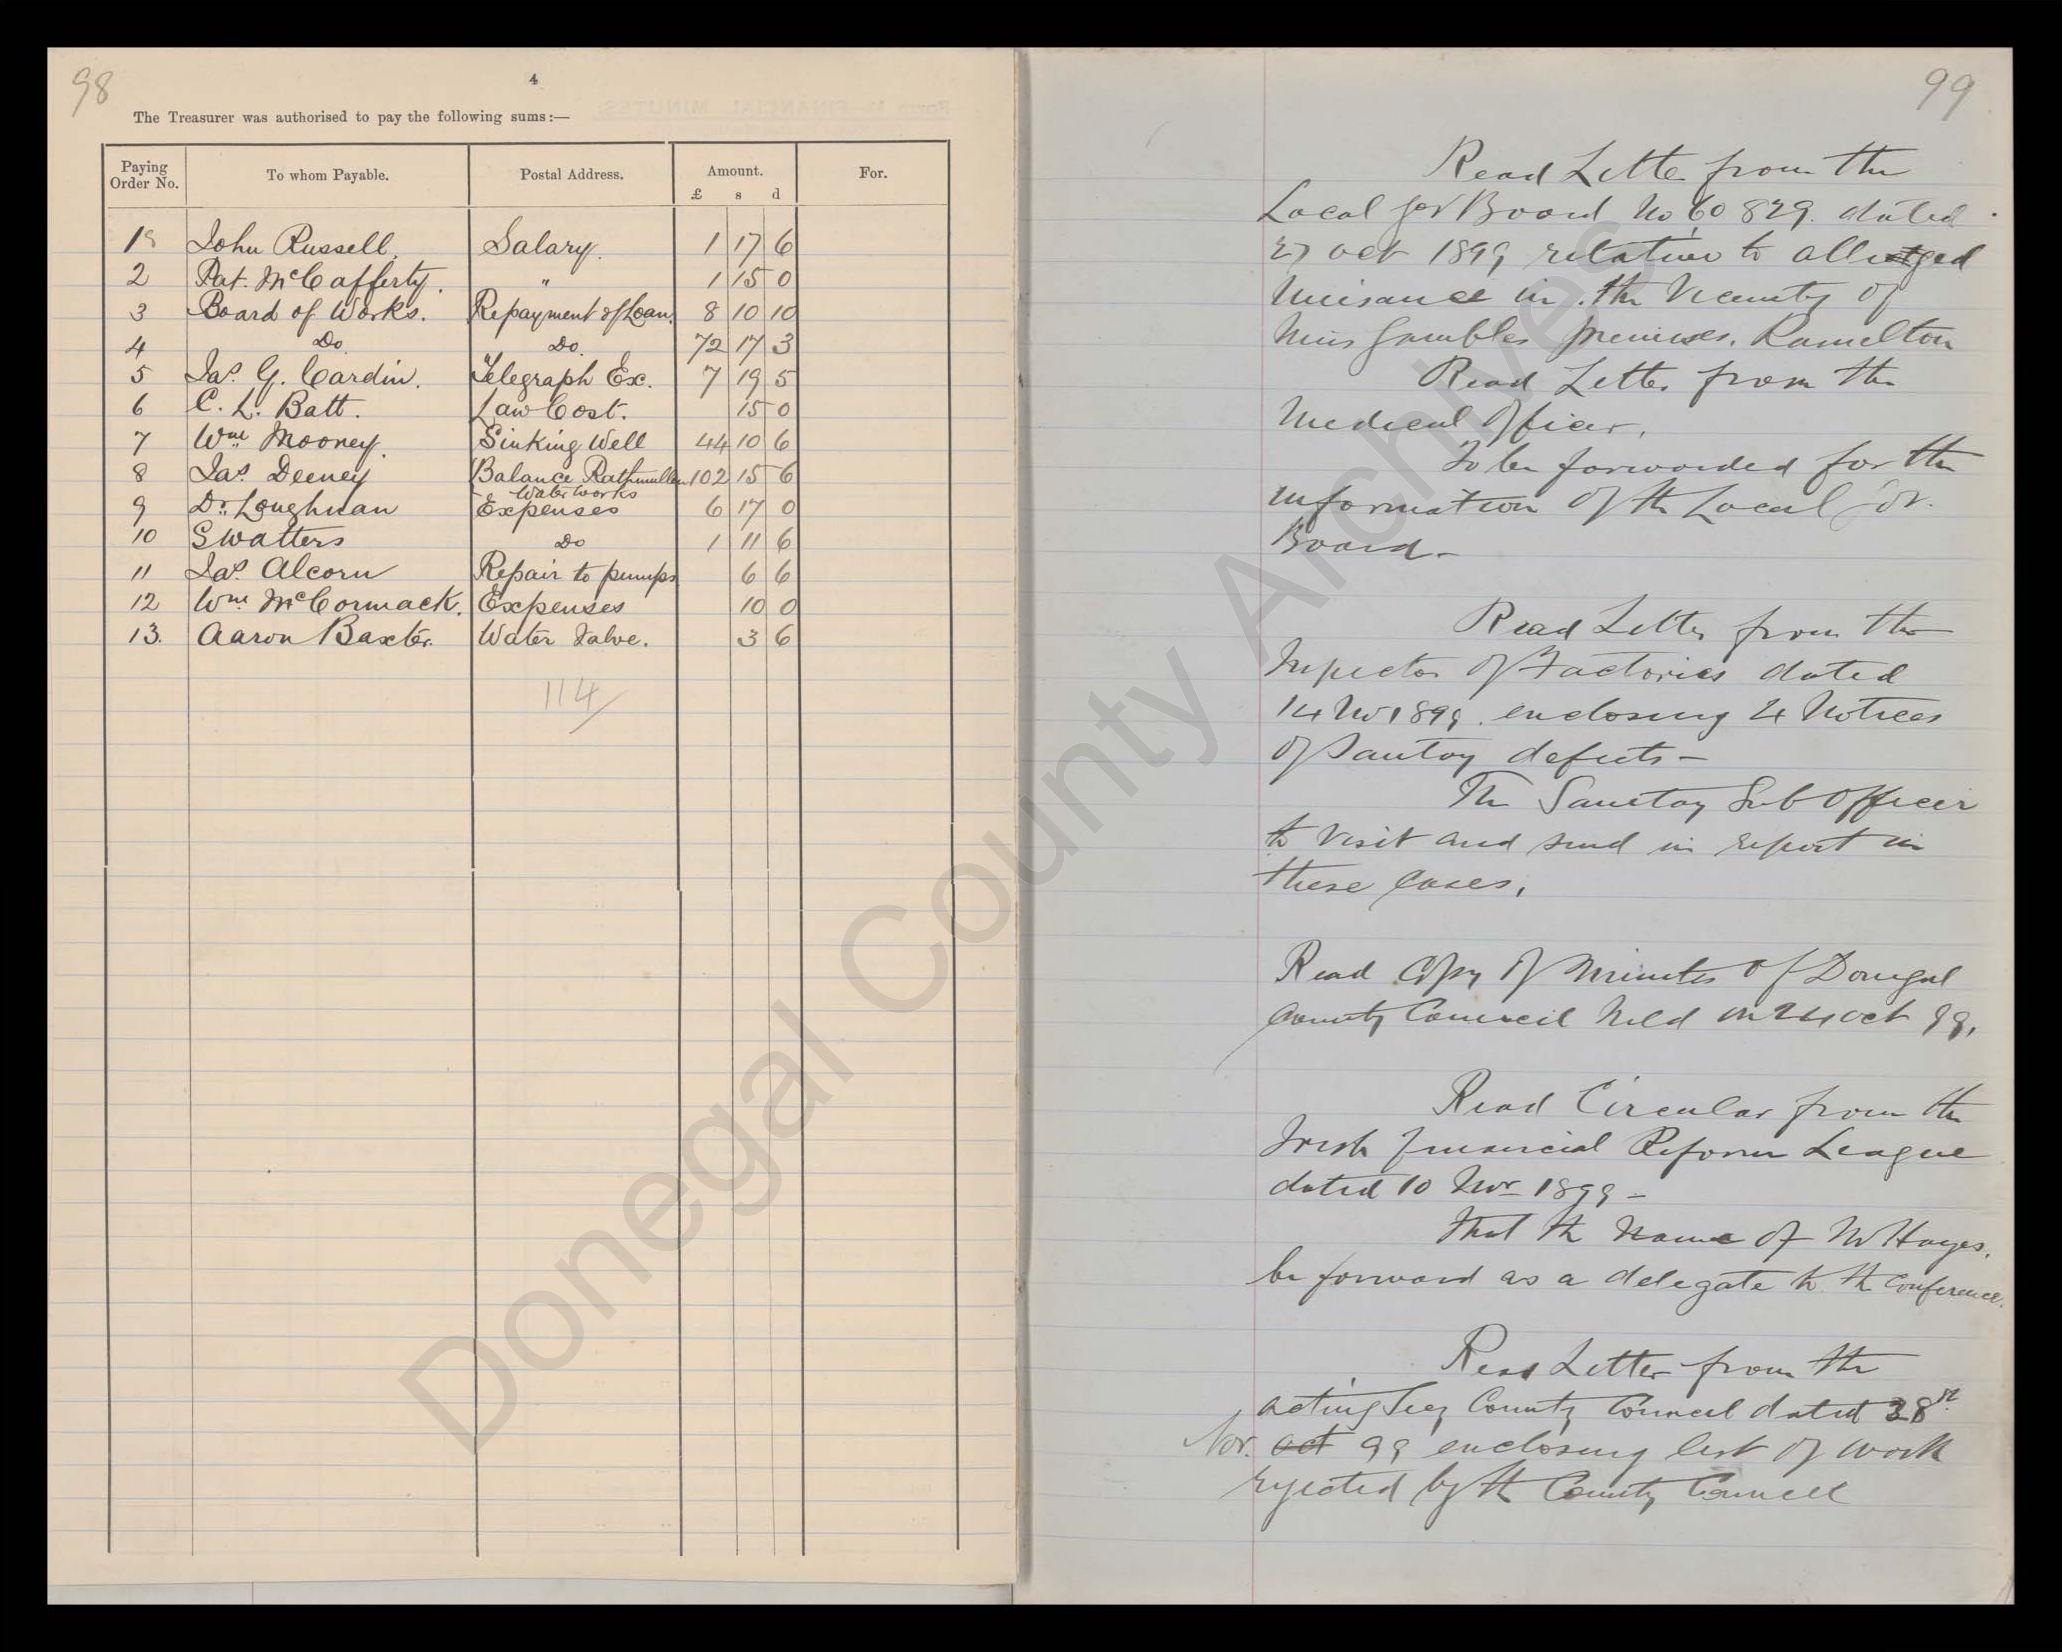 98
4
The Treasurer was authorised to pay the following sums:—
Paying Order No. To whom Payable. Postal Address. Amount. £ s d For.
1 John Russell. Salary. 1 17 6
2 Pat. McCafferty. " 1 15 0
3 Board of Works. Repayment of Loan. 8 10 10
4 Do Do. 72 17 3
5 Jas. G. Cardin. Telegraph Ex. 7 19 5
6 C. L. Batt. Law Cost. 15 0
7 Wm Mooney. Sinking Well 44 10 6
8 Jas Deeney Balance Rathmullen 102 15 6
Waterworks
9 Dr. Loughnan Expenses 6 17 0
10 S Watters Do 1 11 6
11 Jas Alcorn Repair to pumps 6 6
12 Wm McCormack. Expenses 10 0
13. Aaron Baxter. Water Valve. 3 6
114
99
Read Letter from the
Local Gov Board No 60829. dated
27 Oct 1899 relative to alledged
Nuisance in the Vicinity of
Miss Gambles premises, Ramelton
Read Letter from the
Medical Officer,
To be forwarded for the
information of th Local Gov.
Board -
Read Letter from the
Inspector of Factories dated
14 Nov 1899. enclosing 4 Notices
of Sanitary defects -
The Sanitary Sub Officer
to visit and send in report in
these cases,
Read Copy of Minutes of Donegal
County Council held on 24 Oct 99,
Read Circular from the
Irish Financial Reform League
dated 10 Novr 1899 -
That th name of Mr Hayes,
be forward as a delegate to th Conference.
Read Letter from the
acting Secy County Council dated 28
Nov. Oct 99 enclosing list of work
rejected by th County Council
Donegal County Archives